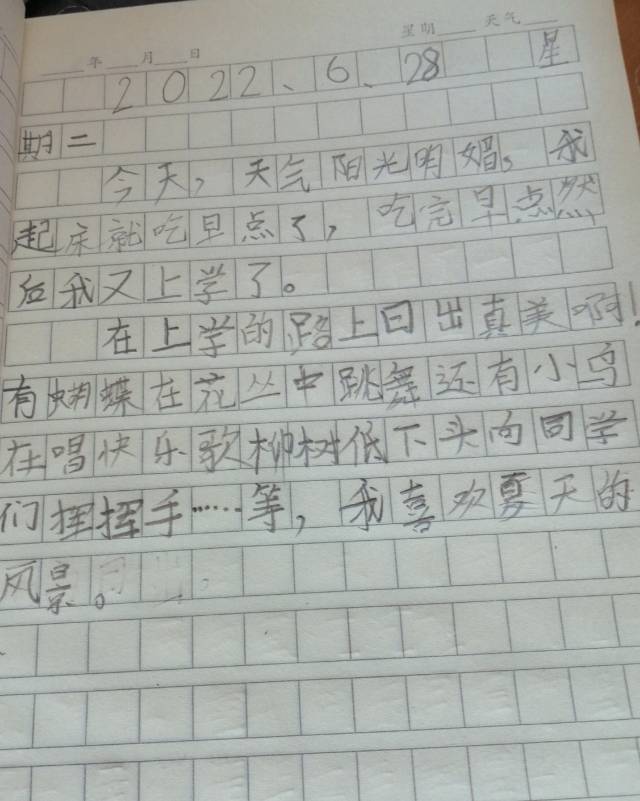 星期____天气____
____年____月____日
2022、6、28 星
期二
今天，天气阳光明媚。我
起床就吃早点了，吃完早点然
后我又上学了。
在上学的路上日出真美啊！
有蝴蝶在花丛中跳舞还有小鸟
在唱快乐歌柳树低下头向同学
们挥挥手……等，我喜欢夏天的
风景。